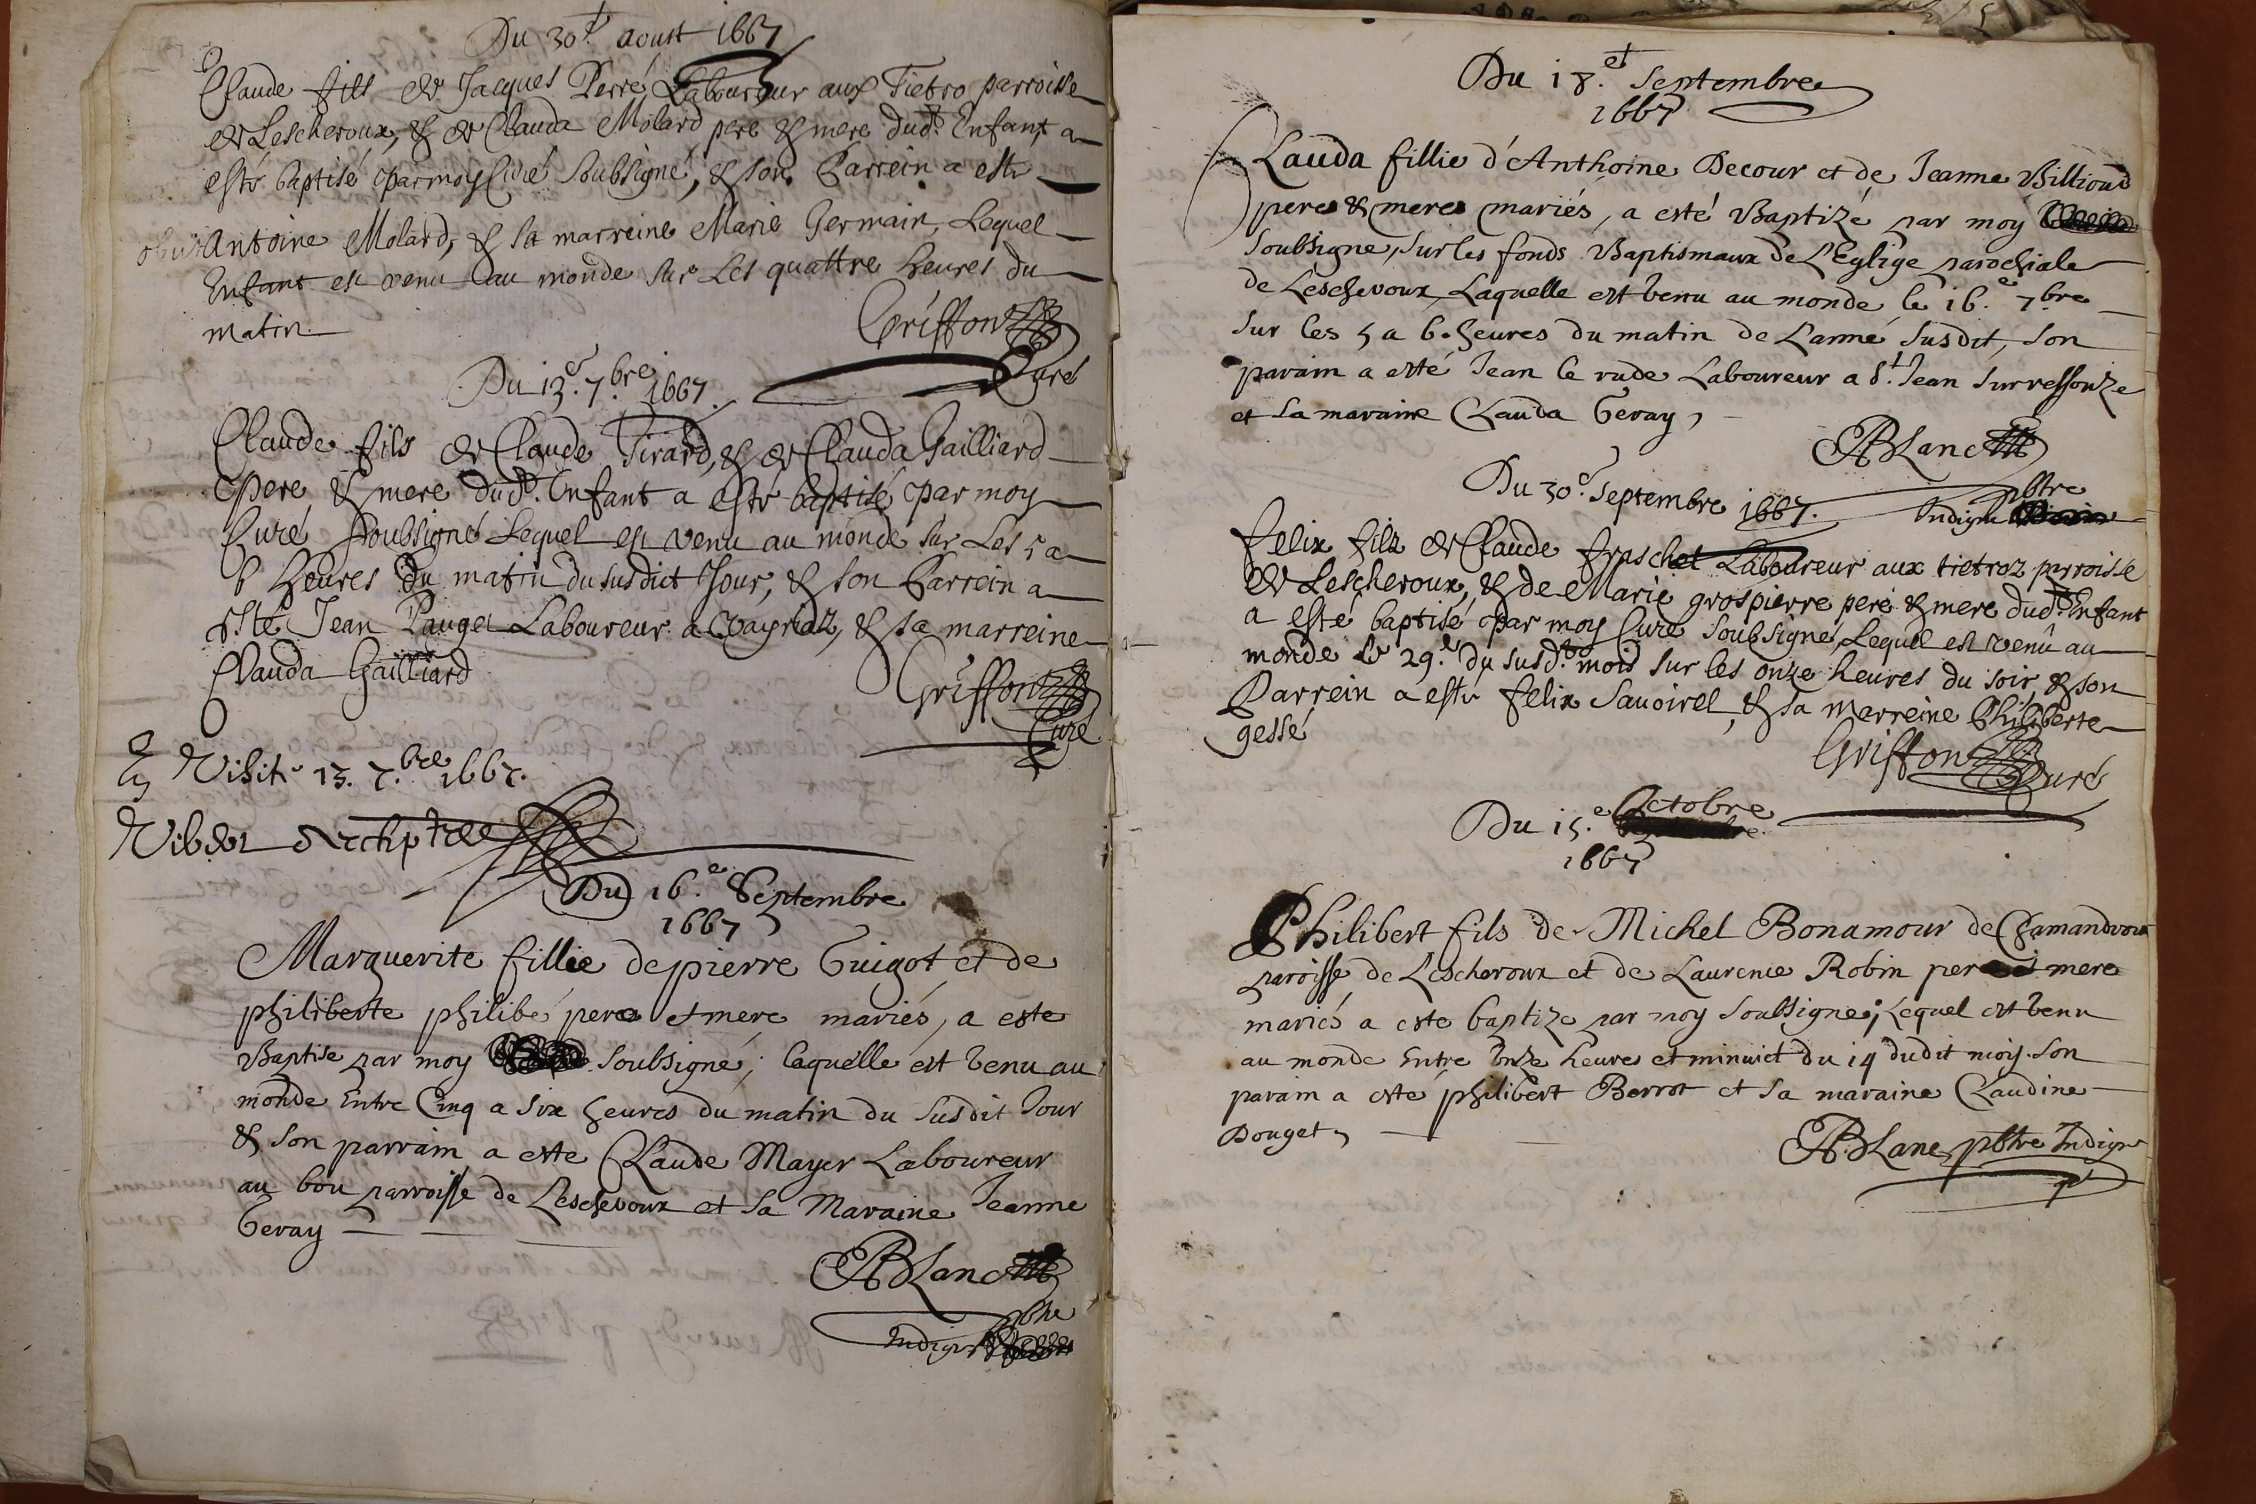 Du 30.t aoust 1667
Claude fils de Jacques Perré Laboureur aux Tietro parroisse
de Lescheroux, & de Clauda Molard pere & mere dud.t Enfant a
esté baptisé par moy Curé soubsigné, & son Parrein a esté
obiit Antoine Molard, & sa marreine Marie Germain, Lequel
Enfant est venu au monde sur Les quattre heures du
matin.
Griffon
Curé
Du 13.e 7.bre 1667.
Claude fils de Claude Tirard, & de Clauda Gailliard
pere & mere dud.t Enfant a esté baptisé par moy
Curé soubsigné Lequel est venu au monde sur Les 5 a
6 Heures du matin du susdict Jour, & son Parrein a
esté Jean Pauget Laboureur a Cvayriaz, & sa marreine
Clauda Gailliard
Griffon
Curé
En Visite 13. 7.bre 1667.
Archiptre
Du 16.e Septembre
1667
Marguerite fillie de pierre Guigot et de
philiberte philibé pere et mere mariés, a este
Baptise par moy soubsigné, laquelle est venu au
monde Entre Cinq a six heures du matin du susdit Jour
& son parrain a este Claude Mayer Laboureur
au bou parroisse de Lescheroux et sa Maraine Jeanne
Geray
Blanc
pbtre
Indigne
Du 18.e Septembre
1667
Clauda fillie d'Anthoine Decour et de Jeanne Billioud
pere & mere mariés, a esté Baptizé par moy
soubsigne, sur les fonds Baptismaux de L'Eglize parochiale
de Lescheroux, Laquelle est venu au monde le 16.e 7bre
sur les 5 a 6. heures du matin de L'anné susdit, son
parain a esté Jean le rude Laboureur a s.t Jean sur ressouze
et sa maraine Clauda Geray,
Blanc
pbtre
Indigne
Du 30.e Septembre 1667.
felix fils de Claude fraschet Laboureur aux tietroz parroisse
de Lescheroux, & de Marie grospierre pere & mere dud.t Enfant
a esté baptisé par moy Curé soubsigné, Lequel est venu au
monde le 29.e du susd.t mois sur les onze heures du soir, & son
Parrein a esté felix Sauoirel, & sa marreine Philiberte
gessé
Griffon
Curé
Du 15.e Octobre
1667
Philibert fils de Michel Bonamour de Chamandroux
paroisse de Lescheroux et de Laurence Robin pere et mere
mariés a este baptize par moy soubsigne, Lequel est venu
au monde Entre onze heures et minuict du 14 dudit mois. son
parain a este philibert Berrot et sa maraine Claudine
Douget,
Blanc pbtre Indigne